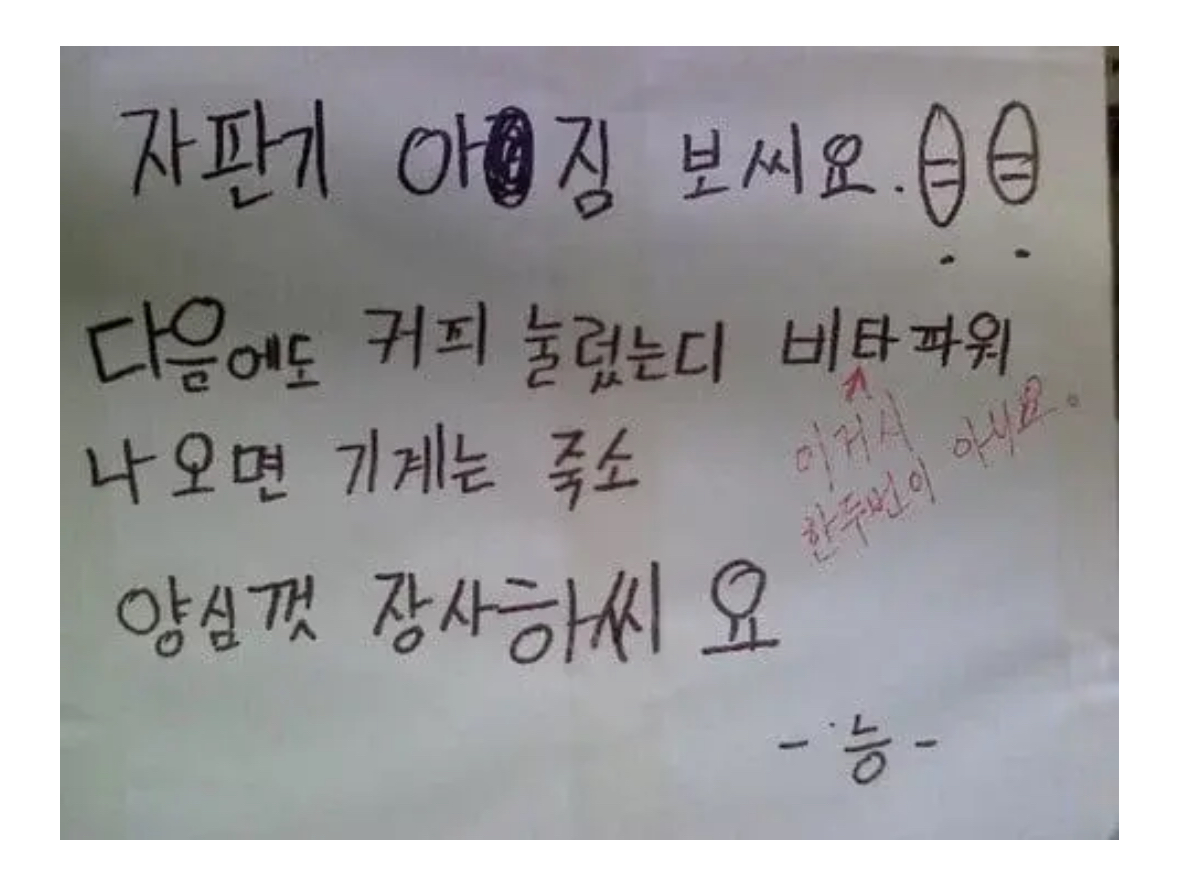 자판기 아짐 보씨요.!!
다음에도 커피 눌렀는디 비타파워
나오면 기계는 죽소
이거시
한두번이 아니요.
양심껏 장사하씨요
- 능 -